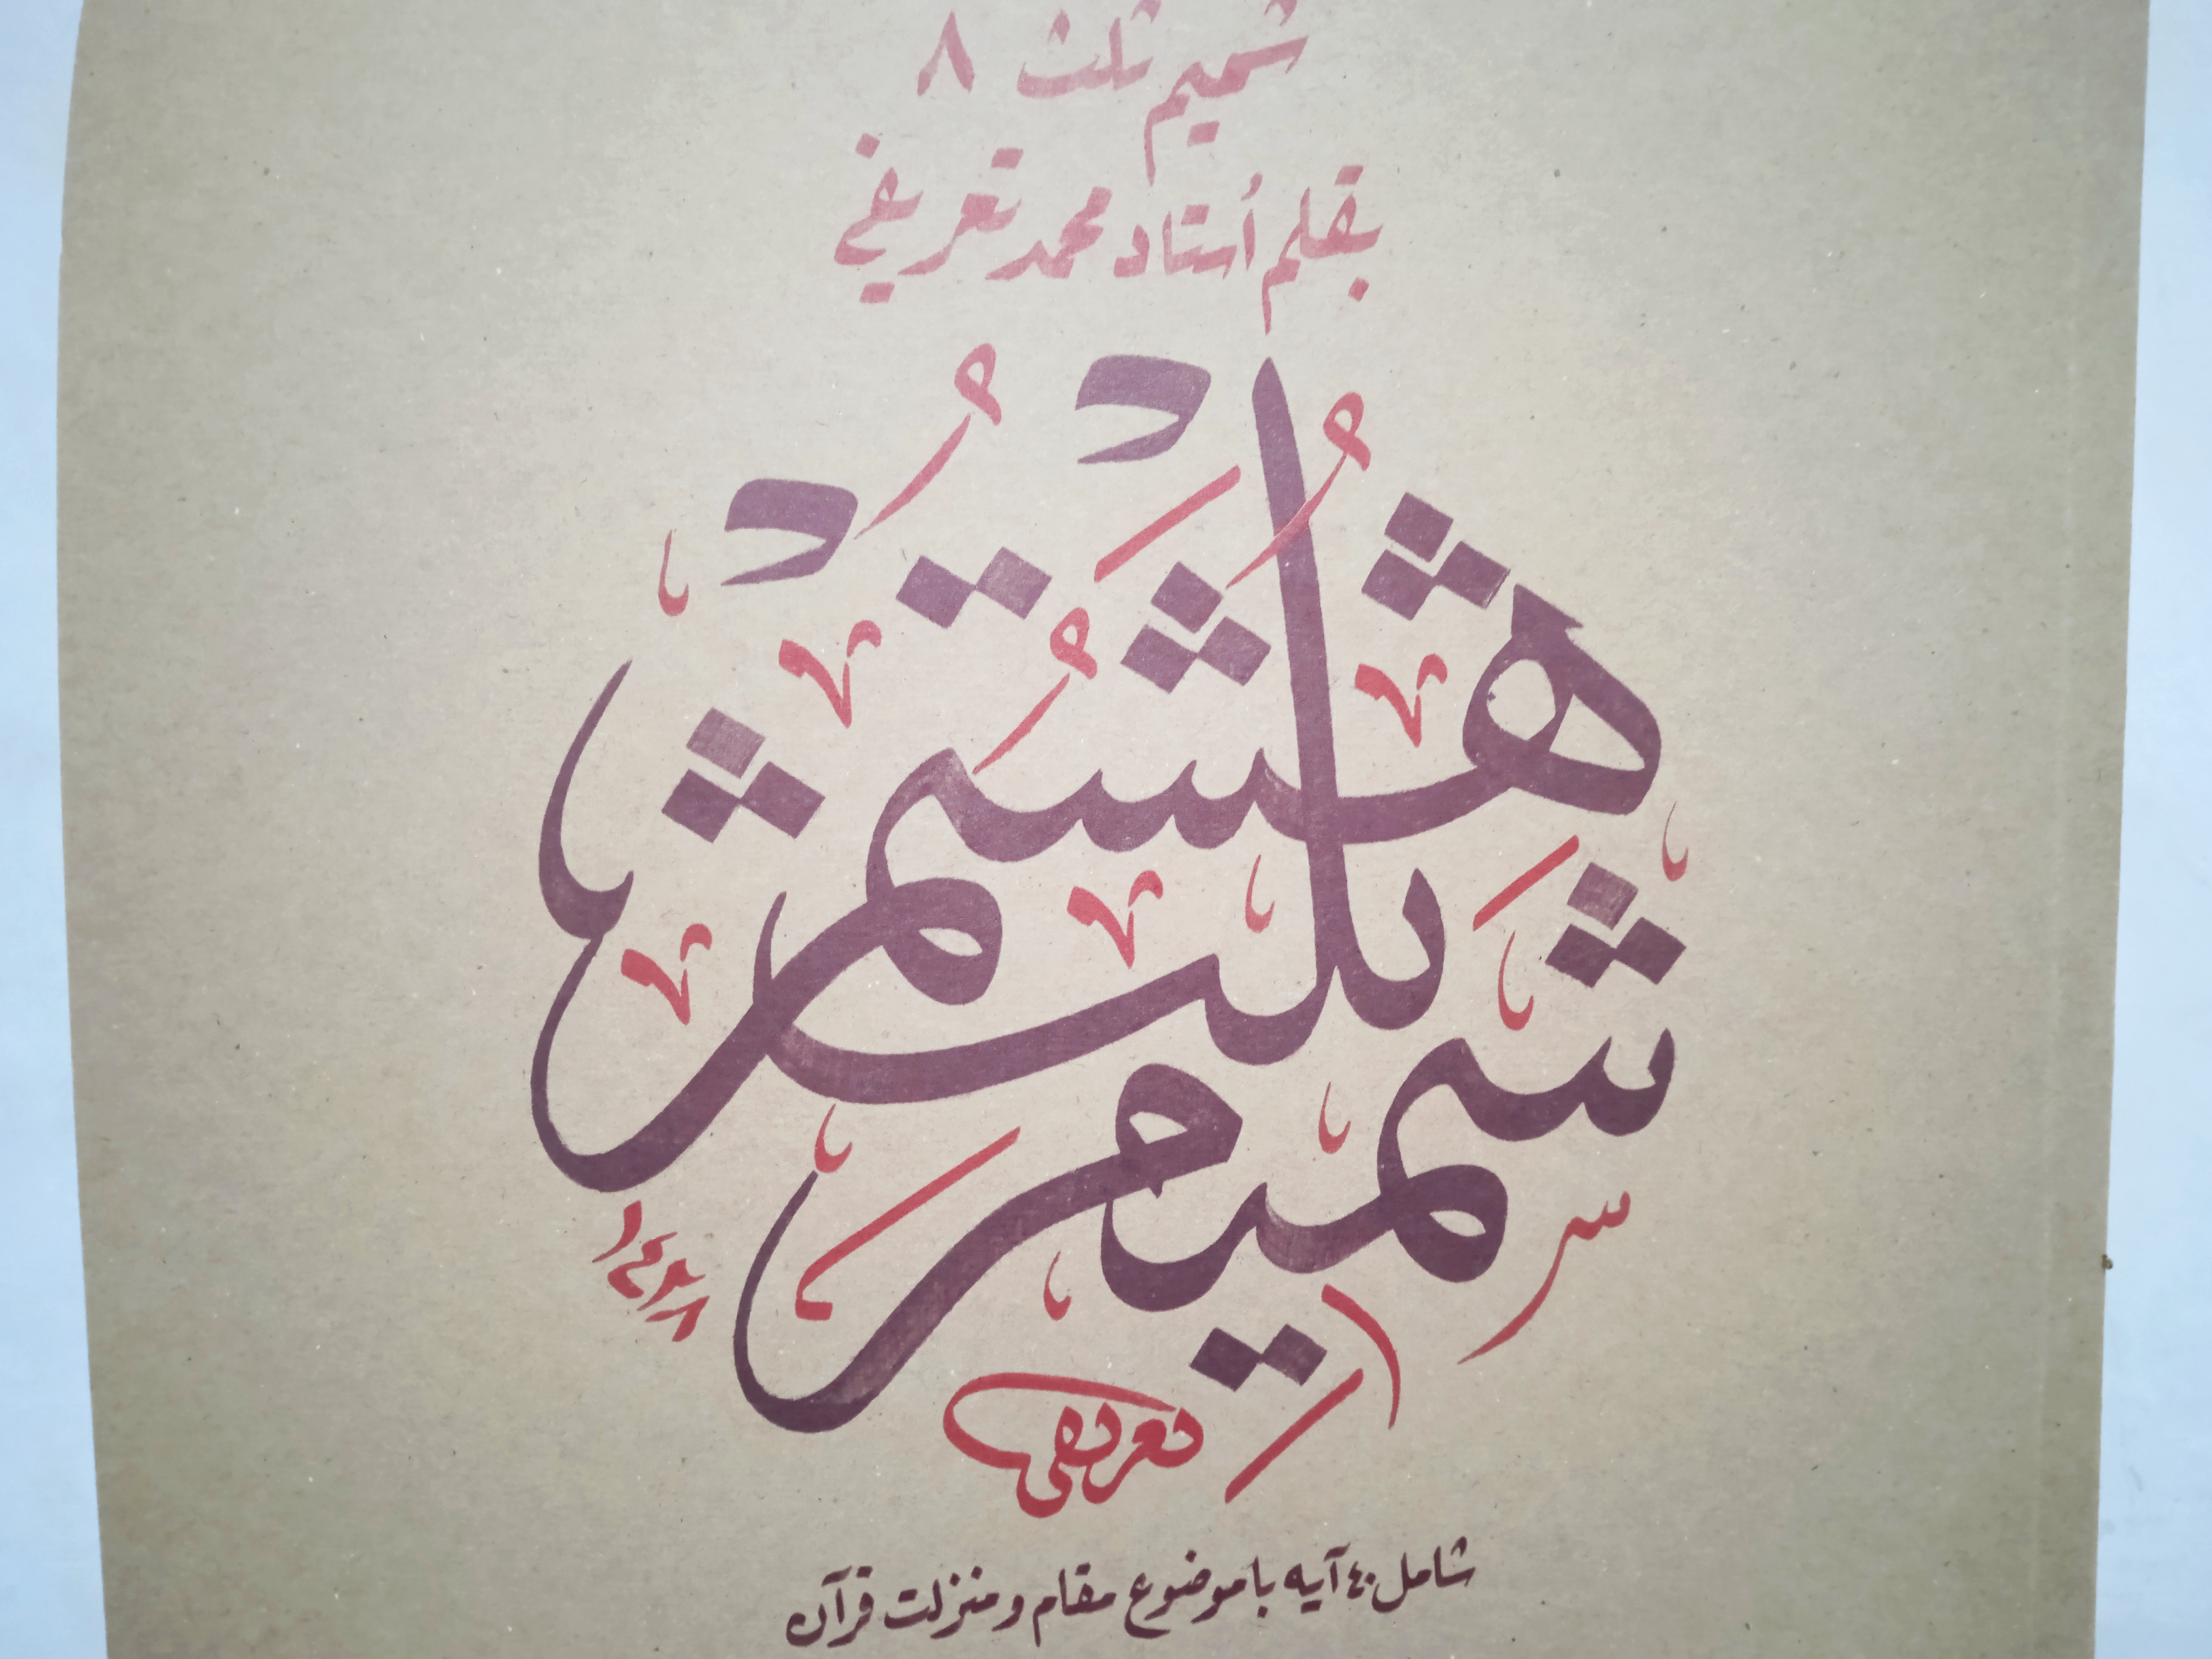 شمیم ثلث ۸
بقلم اُستاد محمد تعریفي
شمیم ثلث هشتم
تعریفی
شامل ٤٠ آیه با موضوع مقام و منزلت قرآن